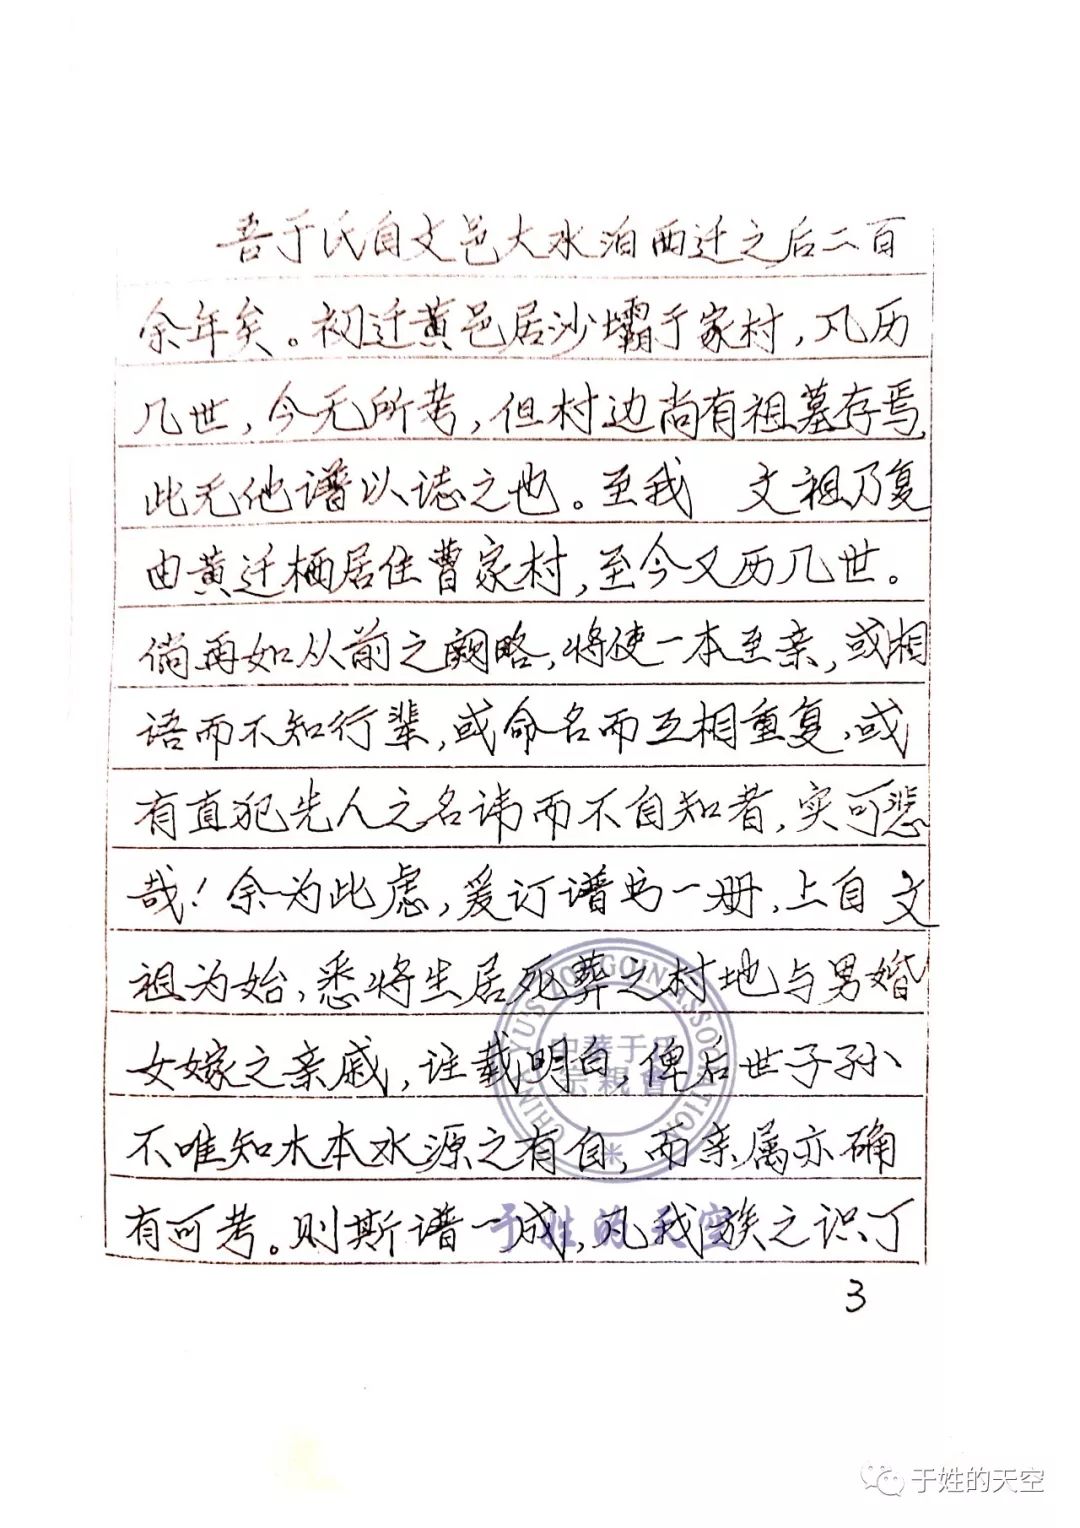 吾于氏自文邑大水泊西迁之后二百
余年矣。初迁黄邑居沙壩于家村，凡历
几世，今无所考，但村边尚有祖墓存焉，
此无他谱以誌之也。至我　文祖乃复
由黄迁栖居住曹家村，至今又历几世。
倘再如从前之阙略，将使一本至亲，或相
语而不知行辈，或命名而互相重复，或
有直犯先人之名讳而不自知者，实可悲
哉！余为此虑，爰订谱书一册，上自 文
祖为始，悉将生居死葬之村地与男婚
女嫁之亲戚，诠载明白，俾后世子孙
不唯知木本水源之有自，而亲属亦确
有可考。则斯谱一成，凡我族之识丁
3
CHINA YU'S LONGGOIN ASSOCIATION
中華于氏
宗親會
于姓的天空
于姓的天空